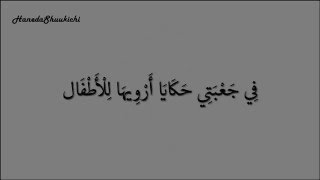 HanedaShuukichi
فِي جَعْبَتِي حَكَايَا أَرْوِيهَا لِلْأَطْفَال